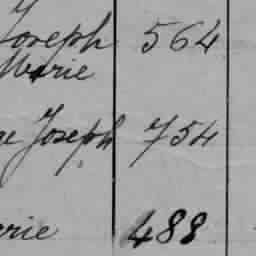 Joseph 564
Marie
Joseph 754
488